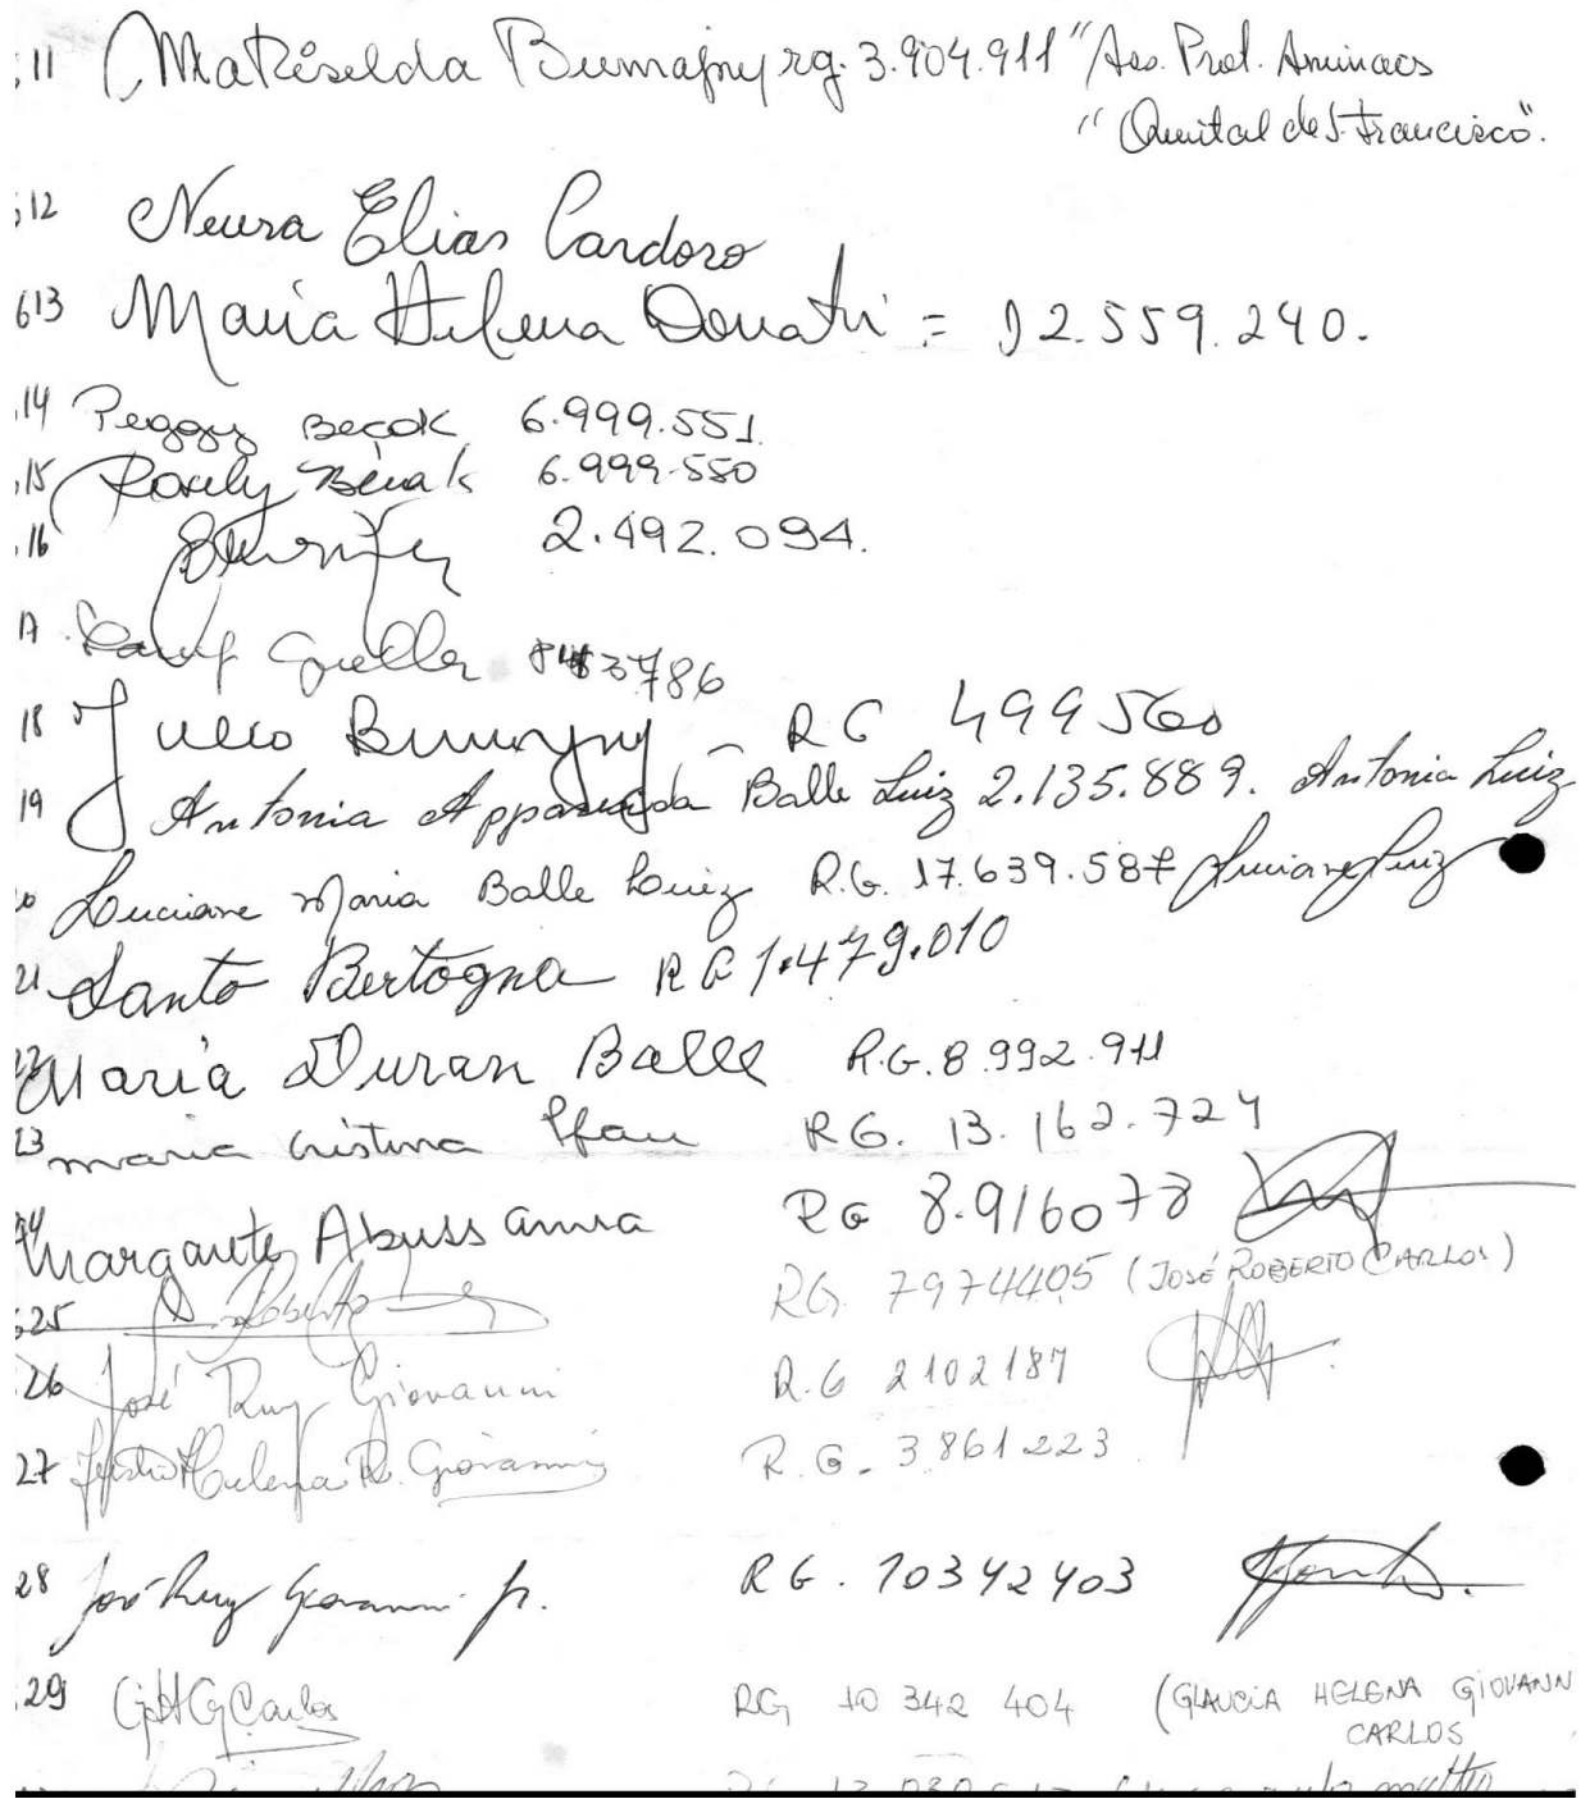 11 Matiselda Bumajny rg. 3.904.911 "Ass. Prot. Animaes
"Quintal de S. Francisco".
12 Neusa Elias Cardozo
613 Maria Helena Donatti = 12.559.240.
14 Peggy Beçak 6.999.551
15 Rosely Beçak 6.999.550
16 2.492.094.
17 3786
18 Julio Bumajny - RG 499560
19 Antonia Apparecida Balle Luiz 2.135.889. Antonia Luiz
Luciane Maria Balle Luiz R.G. 17.639.587 Luciane Luiz
21 Santo Bertogna RG 1.479.010
Maria Duran Balle R.G. 8.992.911
23 maria cristina Pfau RG. 13.162.724
Margarete Abussamra RG 8.916078
625 Roberto RG 7974405 (JOSÉ ROBERTO CARLOS)
26 José Ruy Giovanni R.G 2102187
27 Helena R. Giovanni R.G. 3861223
28 José Ruy Giovanni Jr. RG. 10342403
29 GHGCarlos RG 10 342 404 (GLAUCIA HELENA GIOVANN
CARLOS